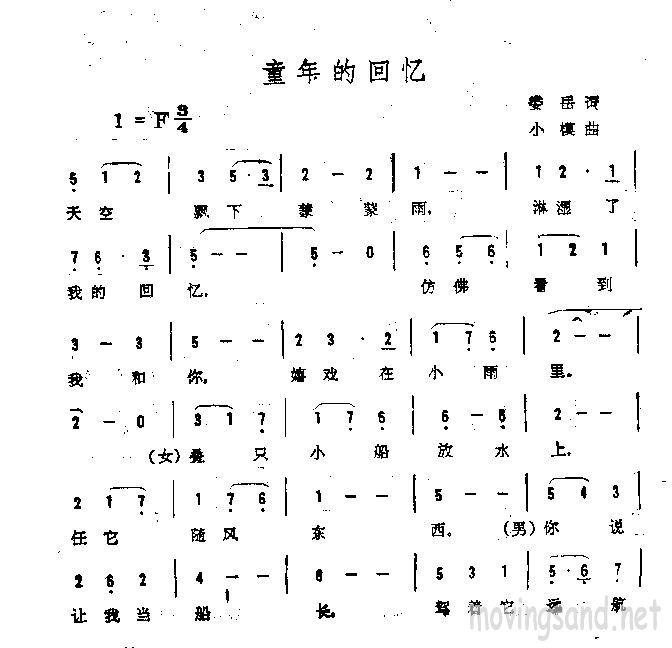 童年的回忆
1 = F 3/4
娄岳词
小模曲
5 1 2 | 3 5 · 3 | 2 - - | 2 - - | 1 2 · 1
天空 飘下 蒙蒙 雨, 淋湿了
7 6 · 3 | 5 - - | 5 - 0 | 6 5 6 | 1 2 5
我的回忆, 仿佛 看到
3 - 3 | 5 - - | 2 3 · 2 | 1 7 6 | 2 - -
我和你, 嬉戏在小雨里。
2 - 0 | 3 1 7 | 1 7 6 | 6 - 6 | 5 - -
(女)叠只小船放水上,
2 1 7 | 1 7 6 | 1 - - | 5 - - | 5 4 3
任它随风东西, (男)你说
2 6 2 | 4 - - | 6 - - | 5 3 1 | 5 · 6 7
让我当船长, 它远航
movingsand.net